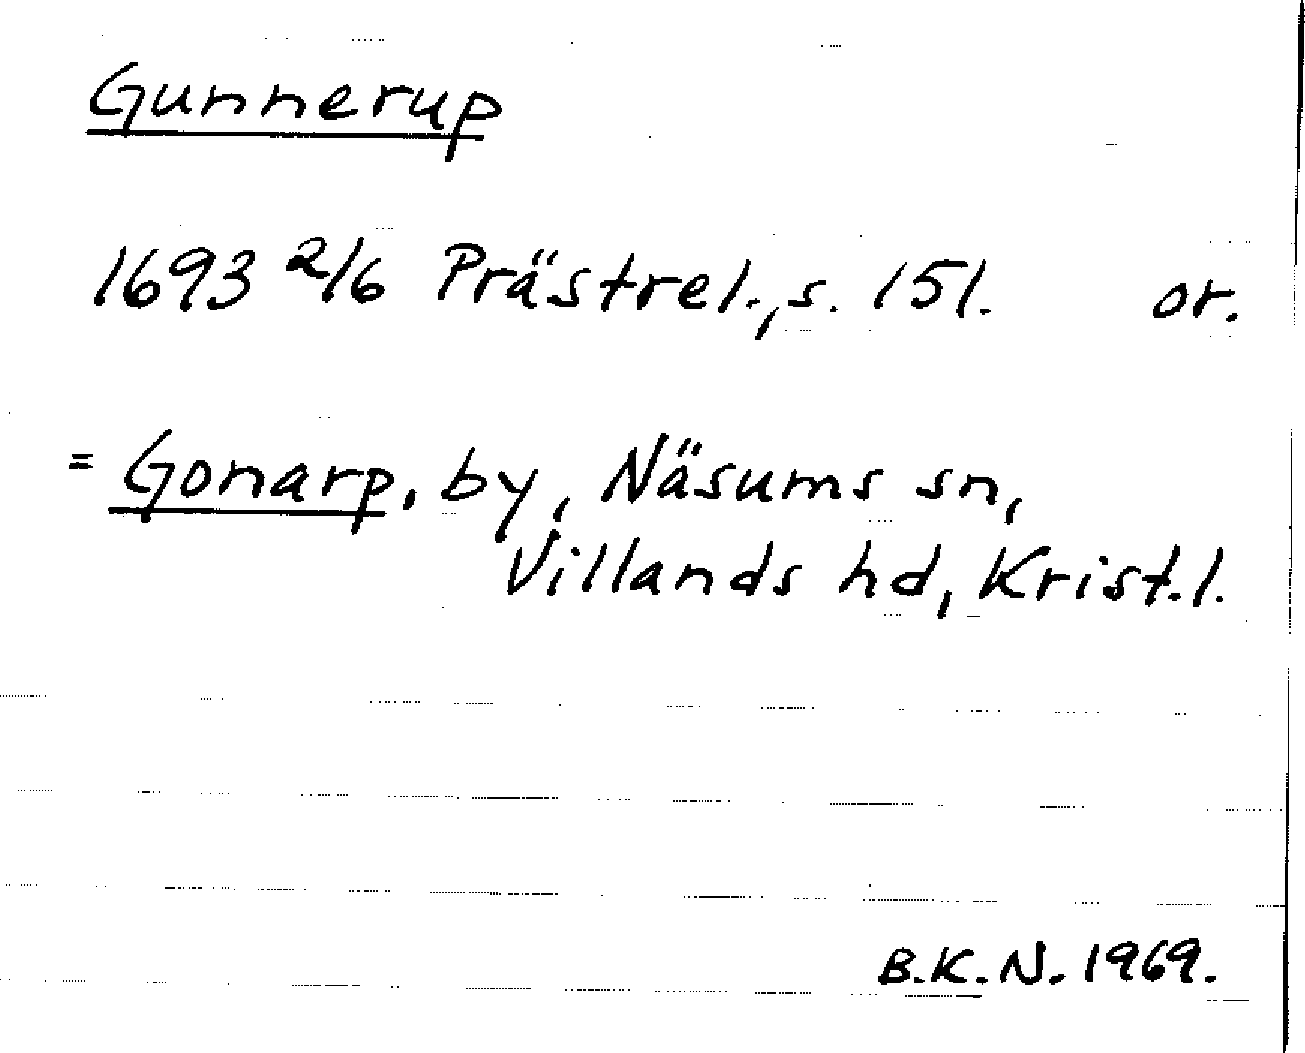 Gunnerup
1693 2/6 Prästrel., s. 151. or.
= Gonarp, by, Näsums sn,
Villands hd, Krist.l.
B.K.N. 1969.